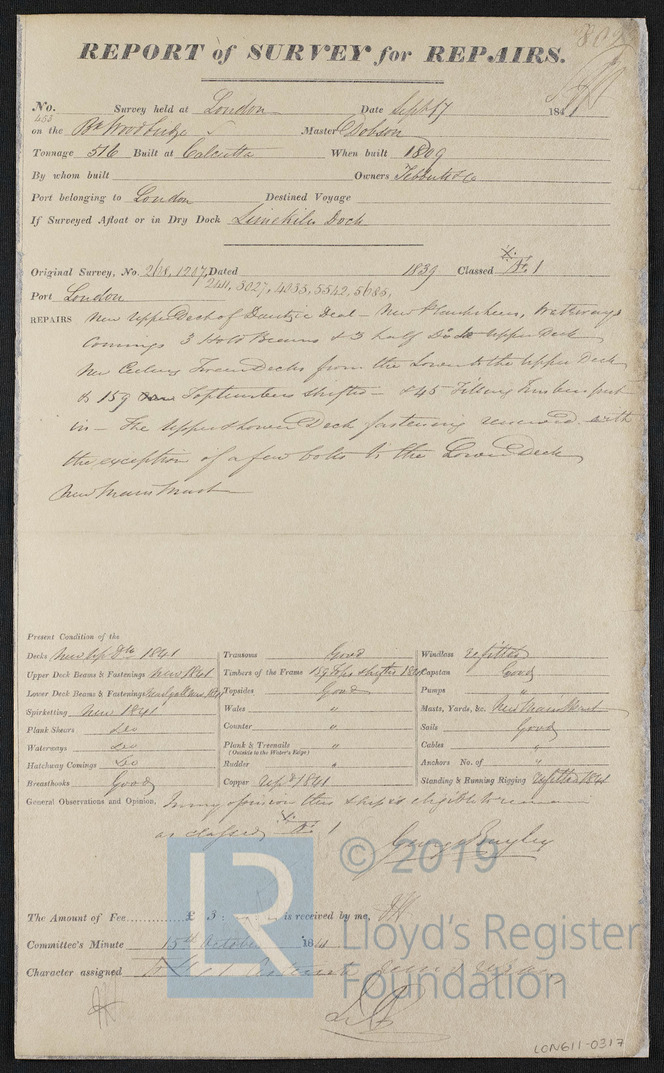 REPORT of SURVEY for REPAIRS.
No. 453 Survey held at London Date Septr 17 1841
on the Bk Woodbridge Master Dobson
Tonnage 516 Built at Calcutta When built 1809
By whom built Owners Tebbut & Co
Port belonging to London Destined Voyage
If Surveyed Afloat or in Dry Dock Limekiln Dock
Original Survey, No. 268, 1207, Dated 1839 Classed Æ 1
2411, 3027, 4035, 5542, 5685,
Port London
REPAIRS New Upper Deck of Dantzic Deal - New Plankshears, Waterways
Comings 3 Hold Beams & 3 half Do to Upper Deck
New Ceiling Tween Decks from the Lower to the Upper Deck
& 159 Toptimbers shifted - & 45 Filling Timbers put
in - The Upper & Lower Deck fastening renewed with
the exception of a few bolts to the Lower Deck
New Main Mast
Present Condition of the
Decks New Up Dk 1841
Upper Deck Beams & Fastenings New 1841
Lower Deck Beams & Fastenings 1841
Spirketting New 1841
Plank Shears Do
Waterways Do
Hatchway Comings Do
Breasthooks Good
Transoms Good
Timbers of the Frame 159 Tops shifted 1841
Topsides Good
Wales "
Counter "
Plank & Treenails "
(Outside to the Water's Edge)
Rudder "
Copper Upr 1841
Windlass refitted
Capstan Good
Pumps "
Masts, Yards, &c. New Main Mast
Sails Good
Cables "
Anchors No. of "
Standing & Running Rigging refitted 1841
General Observations and Opinion, In my opinion this ship is eligible to remain
as classed Æ 1
George Bayley
The Amount of Fee............ £ 3 : is received by me,
Committee's Minute 15th October 1841
Character assigned
© 2019
LR
Lloyd's Register
Foundation
LON611-0317